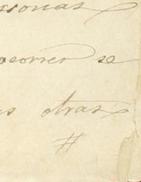 sonas
ocorrer se
as otras
#